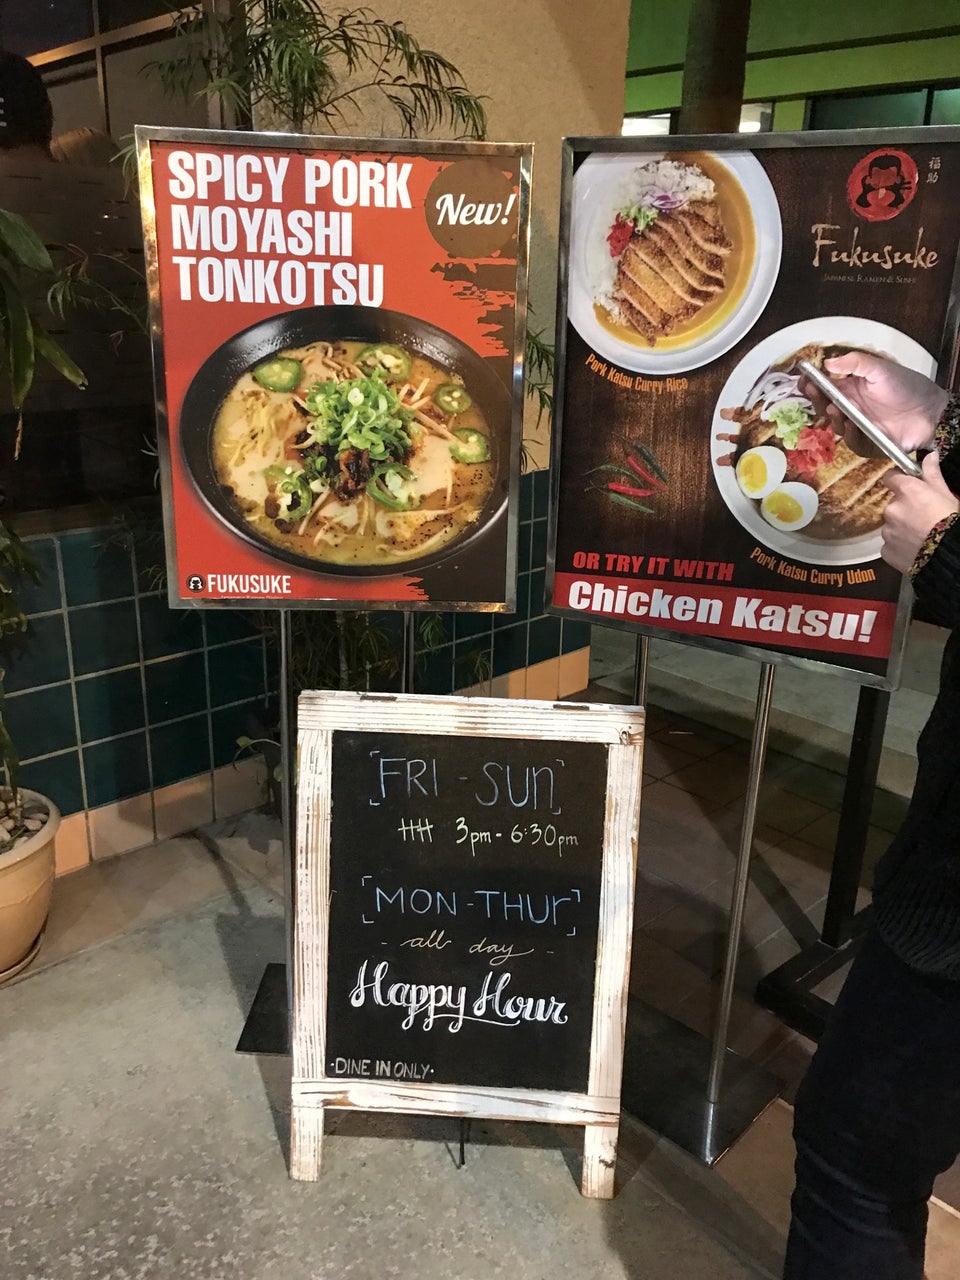 SPICY PORK
MOYASHI
TONKOTSU
New!
FUKUSUKE
福助
Fukusuke
JAPANESE RAMEN & SUSHI
Pork Katsu Curry Rice
Pork Katsu Curry Udon
OR TRY IT WITH
Chicken Katsu!
[FRI - SUN]
HH 3pm - 6:30pm
[MON - THUr]
- all day -
Happy Hour
·DINE IN ONLY·